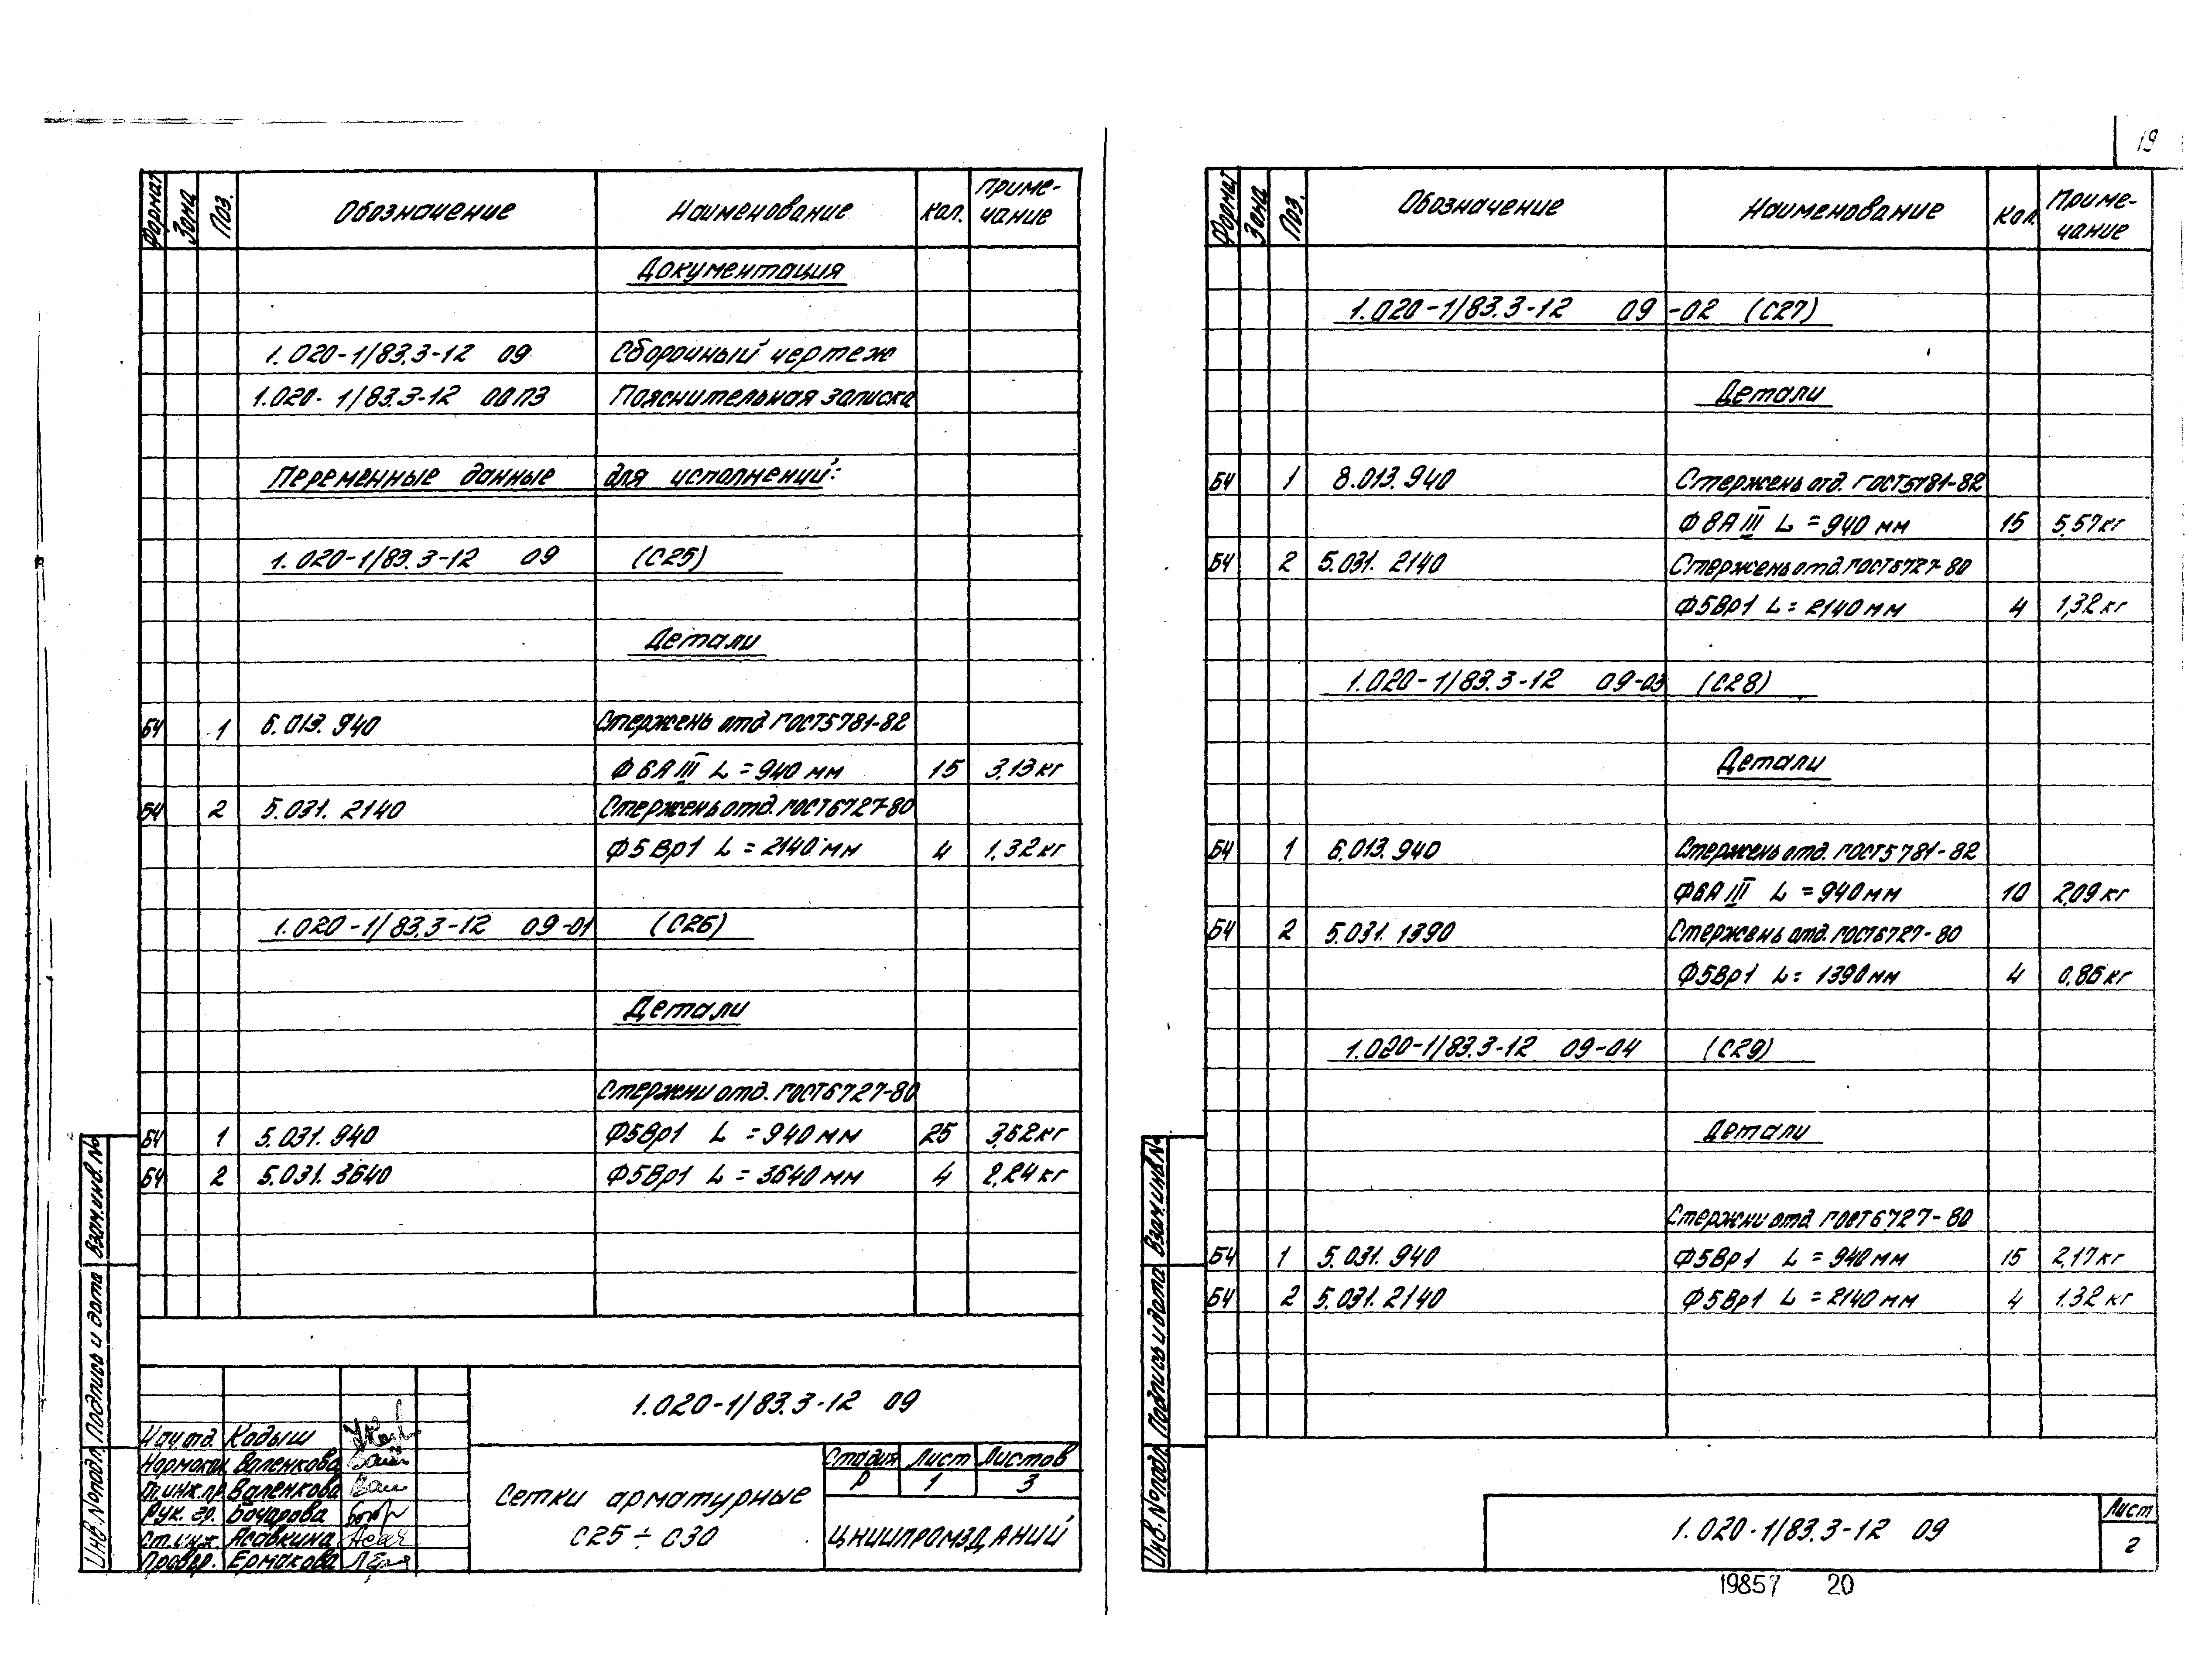 19
Формат Зона Поз. Обозначение Наименование Кол. Приме-
чание
Документация
1.020-1/83.3-12 09 Сборочный чертеж
1.020-1/83.3-12 00ПЗ Пояснительная записка
Переменные данные для исполнений:
1.020-1/83.3-12 09 (С25)
Детали
БЧ 1 6.013.940 Стержень отд. ГОСТ5781-82
Ф6АIII L=940 мм 15 3,13кг
БЧ 2 5.031.2140 Стержень отд. ГОСТ6727-80
Ф5Вр1 L=2140 мм 4 1,32кг
1.020-1/83.3-12 09-01 (С26)
Детали
Стержни отд. ГОСТ6727-80
БЧ 1 5.031.940 Ф5Вр1 L=940 мм 25 3,62кг
БЧ 2 5.031.3640 Ф5Вр1 L=3640 мм 4 2,24кг
Взам.инв.№
Подпись и дата
Инв.№подл.
1.020-1/83.3-12 09
Нач.отд. Кадыш
Нормокон. Валенкова
Гл.инж.пр. Валенкова
Рук.гр. Бочарова
Ст.инж. Асавкина
Провер. Ермакова
Сетки арматурные
С25÷С30
Стадия Лист Листов
Р 1 3
ЦНИИПРОМЗДАНИЙ
Формат Зона Поз. Обозначение Наименование Кол. Приме-
чание
1.020-1/83.3-12 09-02 (С27)
Детали
БЧ 1 8.013.940 Стержень отд. ГОСТ5781-82
Ф8АIII L=940 мм 15 5,57кг
БЧ 2 5.031.2140 Стержень отд. ГОСТ6727-80
Ф5Вр1 L=2140 мм 4 1,32кг
1.020-1/83.3-12 09-03 (С28)
Детали
БЧ 1 6.013.940 Стержень отд. ГОСТ5781-82
Ф6АIII L=940мм 10 2,09кг
БЧ 2 5.031.1390 Стержень отд. ГОСТ6727-80
Ф5Вр1 L=1390мм 4 0,86кг
1.020-1/83.3-12 09-04 (С29)
Детали
Стержни отд. ГОСТ6727-80
БЧ 1 5.031.940 Ф5Вр1 L=940мм 15 2,17кг
БЧ 2 5.031.2140 Ф5Вр1 L=2140мм 4 1.32 кг
Взам.инв.№
Подпись и дата
Инв.№подл.
1.020-1/83.3-12 09
Лист
2
19857 20